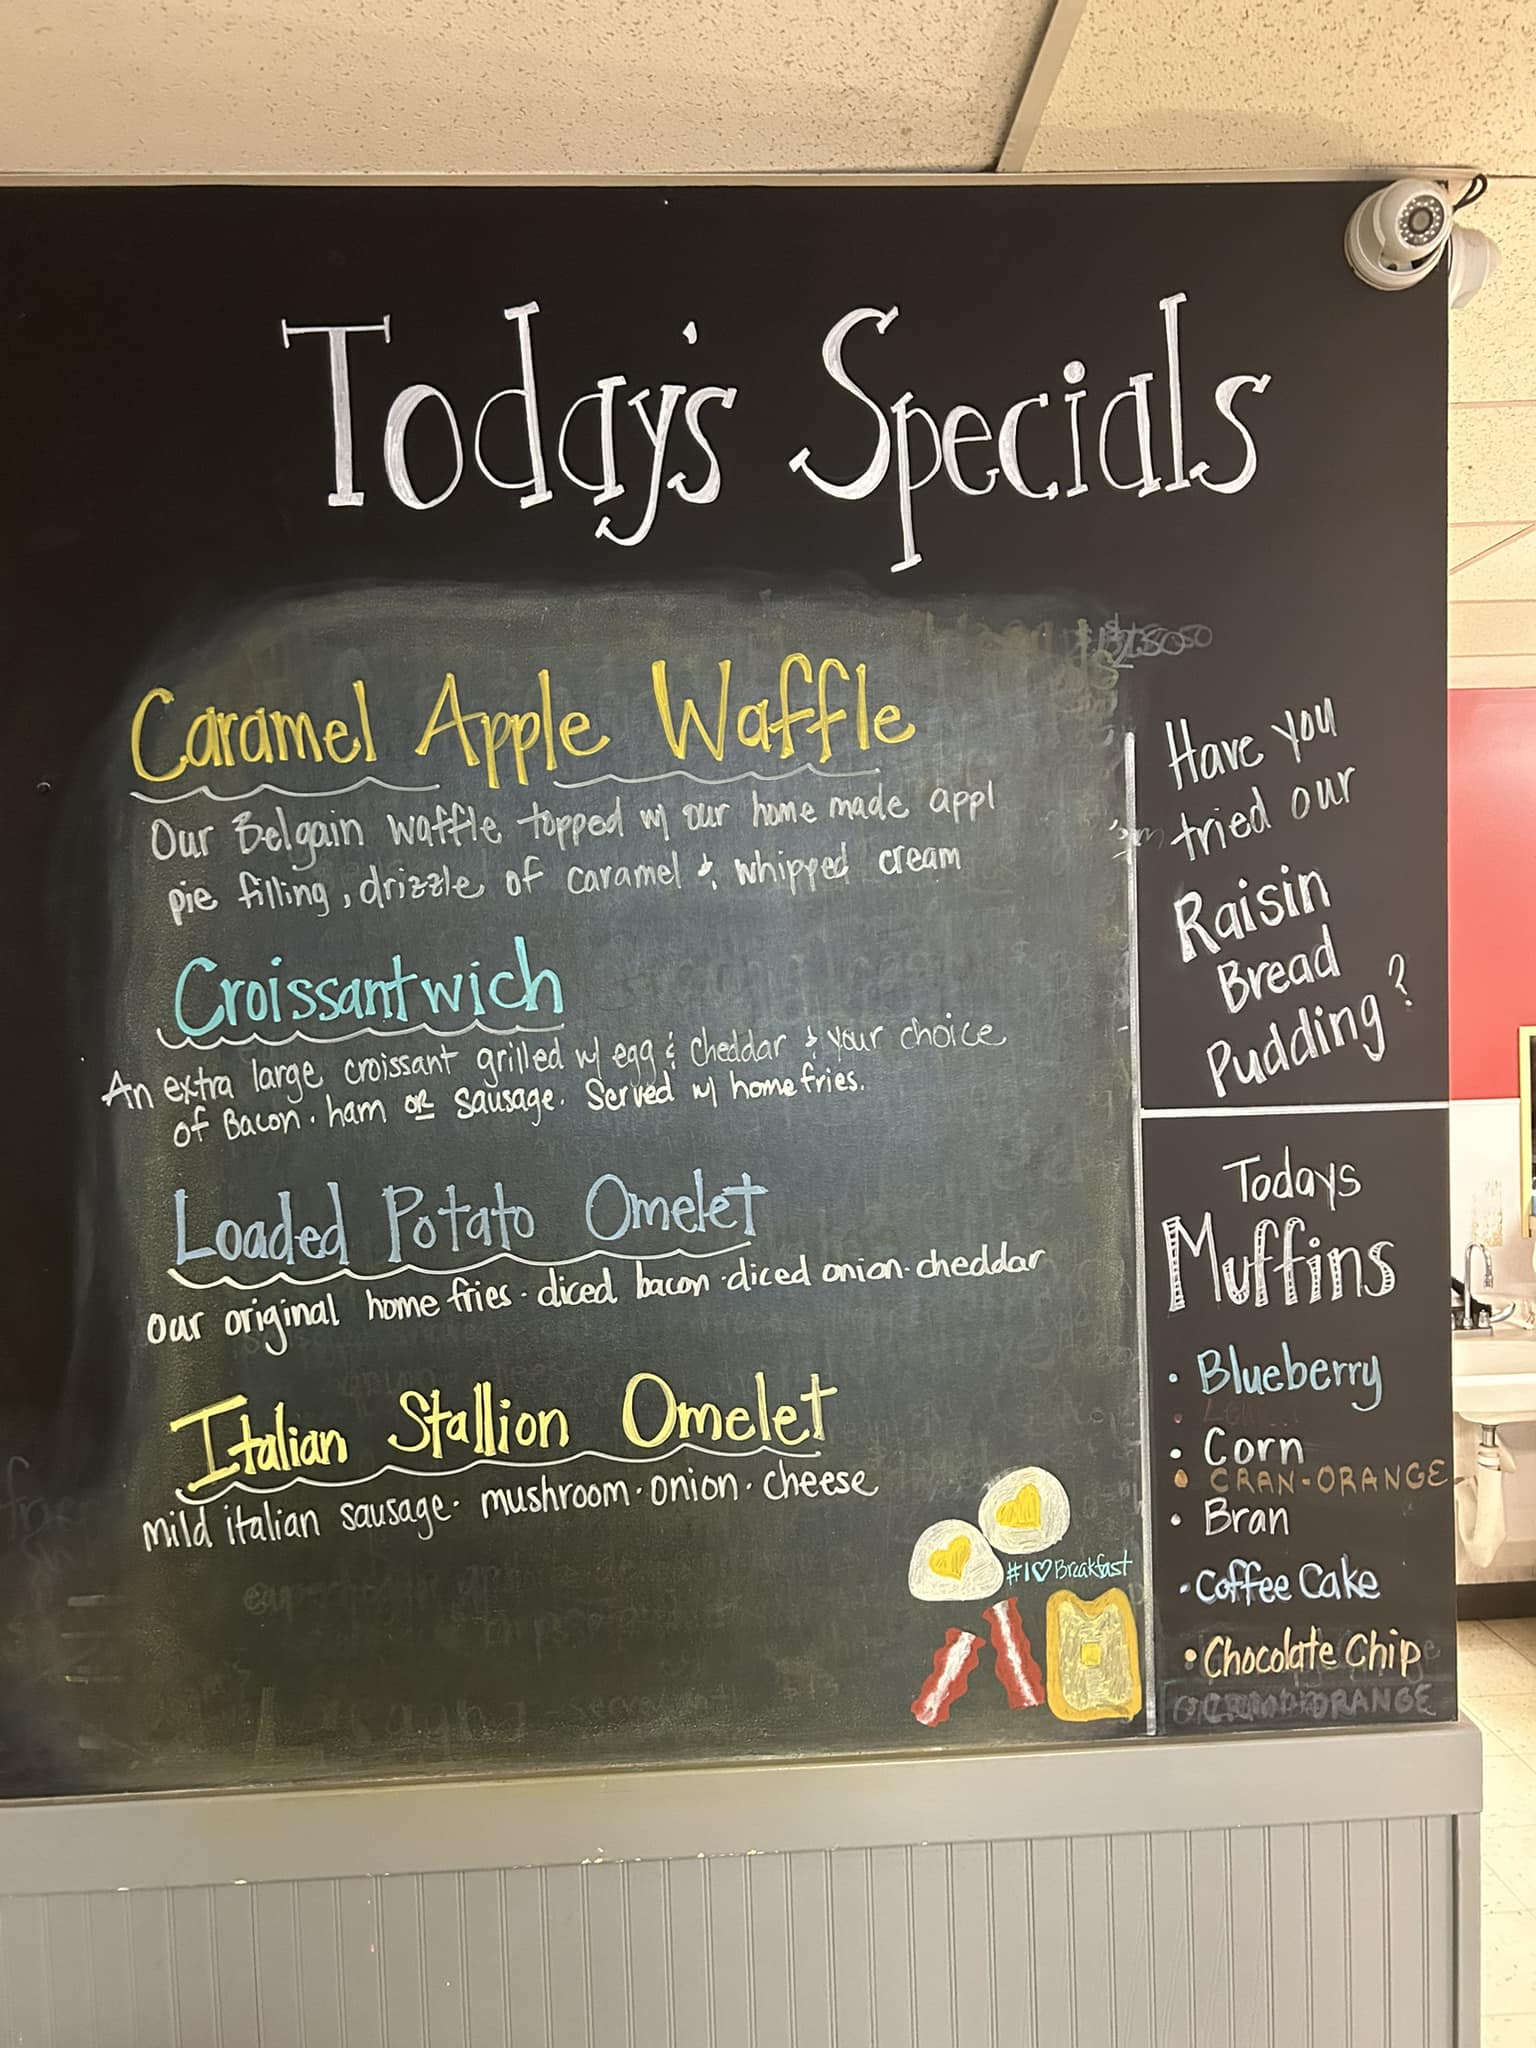 Today's Specials
Caramel Apple Waffle
Our Belgain waffle topped w/ our home made appl
pie filling, drizzle of caramel & whipped cream
Croissantwich
An extra large croissant grilled w/ egg & cheddar & your choice
of Bacon · ham or sausage. Served w/ home fries.
Loaded Potato Omelet
our original home fries · diced bacon · diced onion · cheddar
Italian Stallion Omelet
mild italian sausage · mushroom · onion · cheese
#I♡Breakfast
Have you
tried our
Raisin
Bread
Pudding?
Todays
Muffins
• Blueberry
• Corn
• CRAN-ORANGE
• Bran
• Coffee Cake
• Chocolate Chip
CRAN-ORANGE